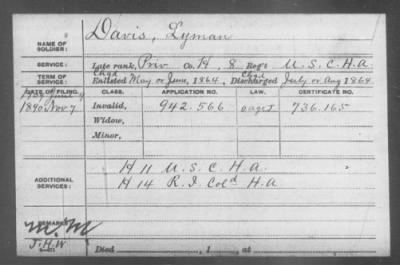 Davis, Lyman
NAME OF SOLDIER:
SERVICE: Late rank, Priv Co. H, 8 Reg't U.S.C.H.A.
TERM OF SERVICE: Enlisted May or June, 1864, Discharged July or Aug 1864
DATE OF FILING. CLASS. APPLICATION NO. LAW. CERTIFICATE NO.
1890 Nov. 7 Invalid, 942.566 736.165
Widow,
Minor,
ADDITIONAL SERVICES: H 11 U.S.C.H.A.
H 14 R.I. Col'd H.A
REMARKS:
J.H.W
Died , 1 , at